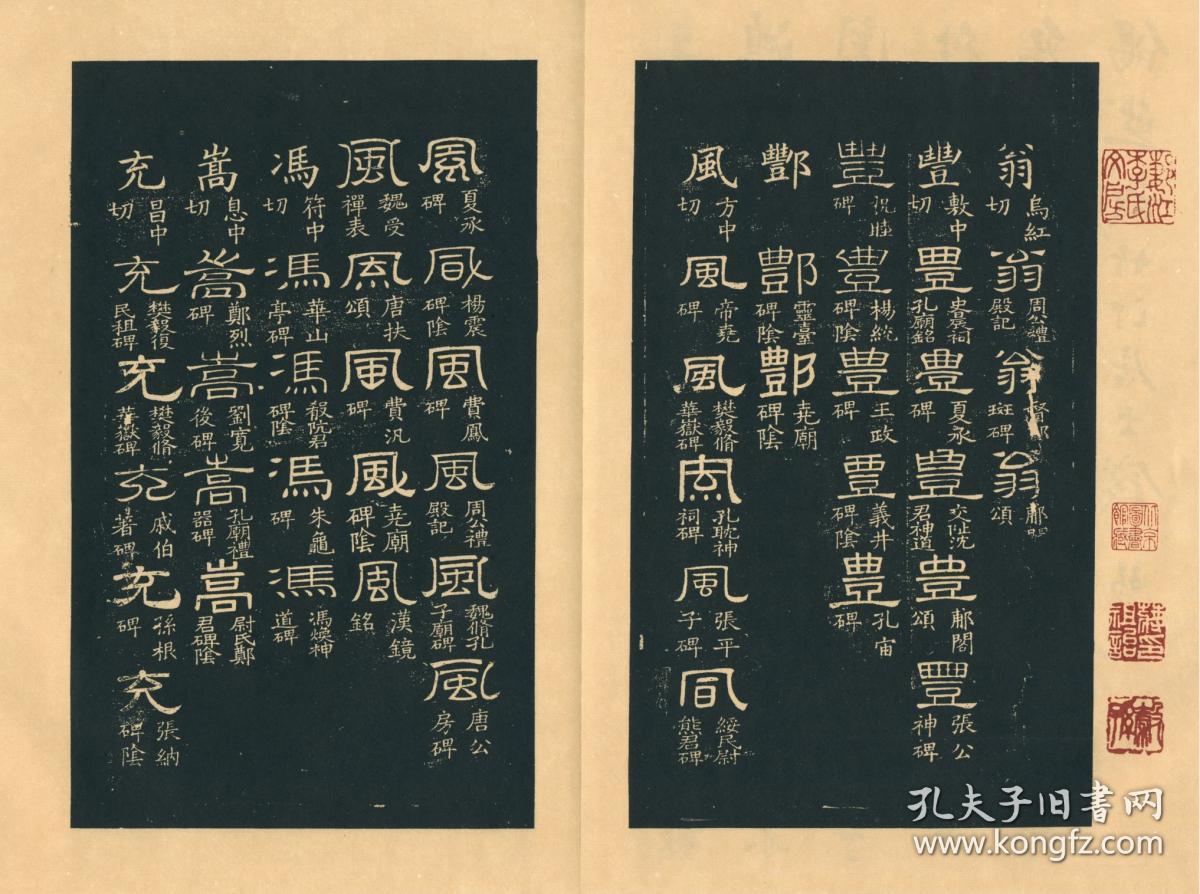 翁烏紅切 翁周公禮殿記 翁督郵斑碑 翁郙閣頌
豐敷中切 豐史晨祠孔廟銘 豐夏承碑 豐交阯沈君神道 豐郙閣頌 豐張公神碑
豐祝睦碑 豐楊統碑陰 豐王政碑 豐義井碑陰 豐孔宙碑
酆 酆靈臺碑陰 酆堯廟碑陰
風方中切 風帝堯碑 風樊毅脩華嶽碑 風孔耽神祠碑 風張平子碑 風綏民尉熊君碑
風夏承碑 風楊震碑陰 風費鳳碑 風周公禮殿記 風魏脩孔子廟碑 風唐公房碑
風魏受禪表 風唐扶頌 風費汎碑 風堯廟碑陰 風漢鏡銘
馮符中切 馮華山亭碑 馮殽阬君碑陰 馮朱龜碑 馮馮煥神道碑
嵩息中切 嵩鄭烈碑 嵩劉寬後碑 嵩孔廟禮器碑 嵩尉氏鄭君碑陰
充昌中切 充樊毅復民租碑 充樊毅脩華嶽碑 充戚伯著碑 充孫根碑 充張納碑陰
孔夫子旧书网
www.kongfz.com